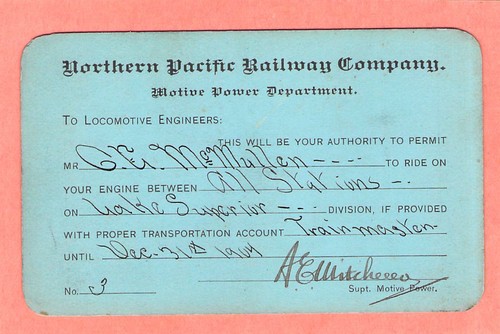 Northern Pacific Railway Company.
Motive Power Department.
TO LOCOMOTIVE ENGINEERS:
THIS WILL BE YOUR AUTHORITY TO PERMIT
MR McMullen - - - - TO RIDE ON
YOUR ENGINE BETWEEN All Stations - -
ON Lake Superior - - - - DIVISION, IF PROVIDED
WITH PROPER TRANSPORTATION ACCOUNT Trainmaster
UNTIL Dec. 31st 1904
A E Mitchell
No. 3 Supt. Motive Power.